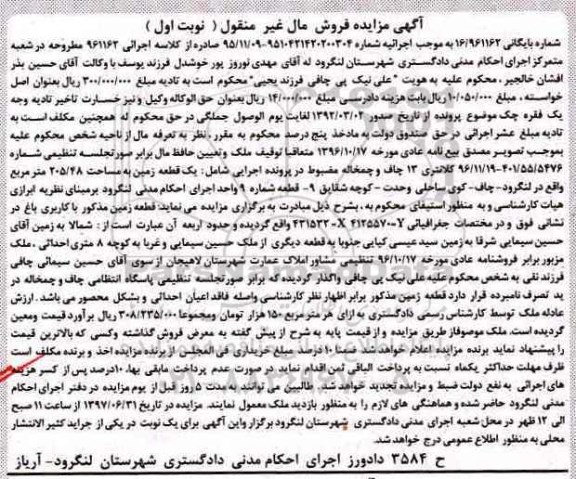 آگهی مزایده فروش مال غیر منقول ( نوبت اول )
شماره بایگانی ۱۶/۹۶۱۱۶۲ به موجب اجرائیه شماره ۹۵۱۰۴۲۱۴۲۰۲۰۰۳۰۴-۹۵/۱۱/۰۹ صادره از کلاسه اجرائی ۹۶۱۱۶۲ مطروحه در شعبه
متمرکز اجرای احکام مدنی دادگستری شهرستان لنگرود له آقای مهدی نوروز پور خوشدل فرزند یوسف با وکالت آقای حسین بذر
افشان خالجیر ، محکوم علیه به هویت "علی نیک پی چافی فرزند یحیی" محکوم است به تادیه مبلغ ۳۰۰/۰۰۰/۰۰۰ ریال بعنوان اصل
خواسته ، مبلغ ۱۰/۰۵۰/۰۰۰ ریال بابت هزینه دادرسی مبلغ ۱۴/۰۰۰/۰۰۰ ریال بعنوان حق الوکاله وکیل و نیز خسارت تاخیر تادیه وجه
یک فقره چک موضوع پرونده از تاریخ صدور ۱۳۹۲/۰۳/۰۲ لغایت یوم الوصول جملگی در حق محکوم له همچنین مکلف است به
تادیه مبلغ عشر اجرائی در حق صندوق دولت به ماخذ پنج درصد محکوم به مقرر ، نظر به تعرفه مال از ناحیه شخص محکوم علیه
بموجب تصویر مصدق بیع نامه عادی مورخه ۱۳۹۶/۱۰/۱۷ متعاقبا توقیف ملک و تعیین حافظ مال برابر صورتجلسه تنظیمی شماره
۴۰۱/۵۵/۵۴۷۶-۹۶/۱۱/۱۹ کلانتری ۱۳ چاف و چمخاله مضبوط در پرونده اجرایی شامل : یک قطعه زمین به مساحت ۲۰۵/۴۸ متر مربع
واقع در لنگرود-چاف-کوی ساحلی وحدت - کوچه شقایق ۹- قطعه شماره ۹ واحد اجرای احکام مدنی لنگرود برمبنای نظریه ابرازی
هیات کارشناسی و به منظور استیفای محکوم به ، بشرح ذیل مبادرت به برگزاری مزایده می نماید: قطعه زمین مذکور با کاربری باغ در
نشانی فوق و در مختصات جغرافیائی Y-۴۱۲۵۵۷۰ X-۴۳۱۵۳۲ واقع گردیده و حدود اربعه آن عبارت است از : شمالا به زمین آقای
حسین سیمایی شرقا به زمین سید عیسی کیایی جنوبا به قطعه دیگری از ملک حسین سیمایی و غربا به کوچه ۸ متری احداثی . ملک
مزبور برابر فروشنامه عادی مورخه ۹۶/۱۰/۱۷ تنظیمی مشاور املاک عمارت شهرستان لاهیجان از سوی آقای حسین سیمائی چافی
فرزند نقی به شخص محکوم علیه علی نیک پی چافی واگذار گردیده که برابر صورتجلسه تنظیمی پاسگاه انتظامی چاف و چمخاله در
ید تصرف نامبرده قرار دارد قطعه زمین مذکور برابر اظهار نظر کارشناسی واصله فاقد اعیان احداثی و بشکل محصور می باشد . ارزش
عادله ملک توسط کارشناس رسمی دادگستری به ازای هر متر مربع ۱۵۰ هزار تومان ومجموعا ۳۰۸/۲۳۵/۰۰۰ ریال برآورد قیمت ومعین
گردیده است. ملک موصوفاز طریق مزایده و از قیمت پایه به شرح از پیش گفته به معرض فروش گذاشته وکسی که بالاترین قیمت
را پیشنهاد نماید برنده مزایده اعلام خواهد شد ضمنا ۱۰ درصد مبلغ خریداری فی المجلس از برنده مزایده اخذ و برنده مکلف است
ظرف مهلت حداکثر یکماه نسبت به پرداخت الباقی ثمن اقدام نماید در صورت عدم پرداخت مابقی بها، ۱۰درصد پس از کسر هزینه
های اجرائی به نفع دولت ضبط و مزایده تجدید خواهد شد. طالبین می توانند به مدت ۵ روز قبل از یوم مزایده در دفتر اجرای احکام
مدنی لنگرود حاضر شده و هماهنگی های لازم را به منظور بازدید ملک معمول نمایند. مزایده در تاریخ ۱۳۹۷/۰۶/۳۱ از ساعت ۱۱ صبح
الی ۱۲ ظهر در محل شعبه اجرای مدنی دادگستری شهرستان لنگرود برگزار واین آگهی برای یک نوبت در یکی از جراید کثیر الانتشار
محلی به منظور اطلاع عمومی درج خواهد شد.
ح ۳۵۸۴ دادورز اجرای احکام مدنی دادگستری شهرستان لنگرود- آریاز